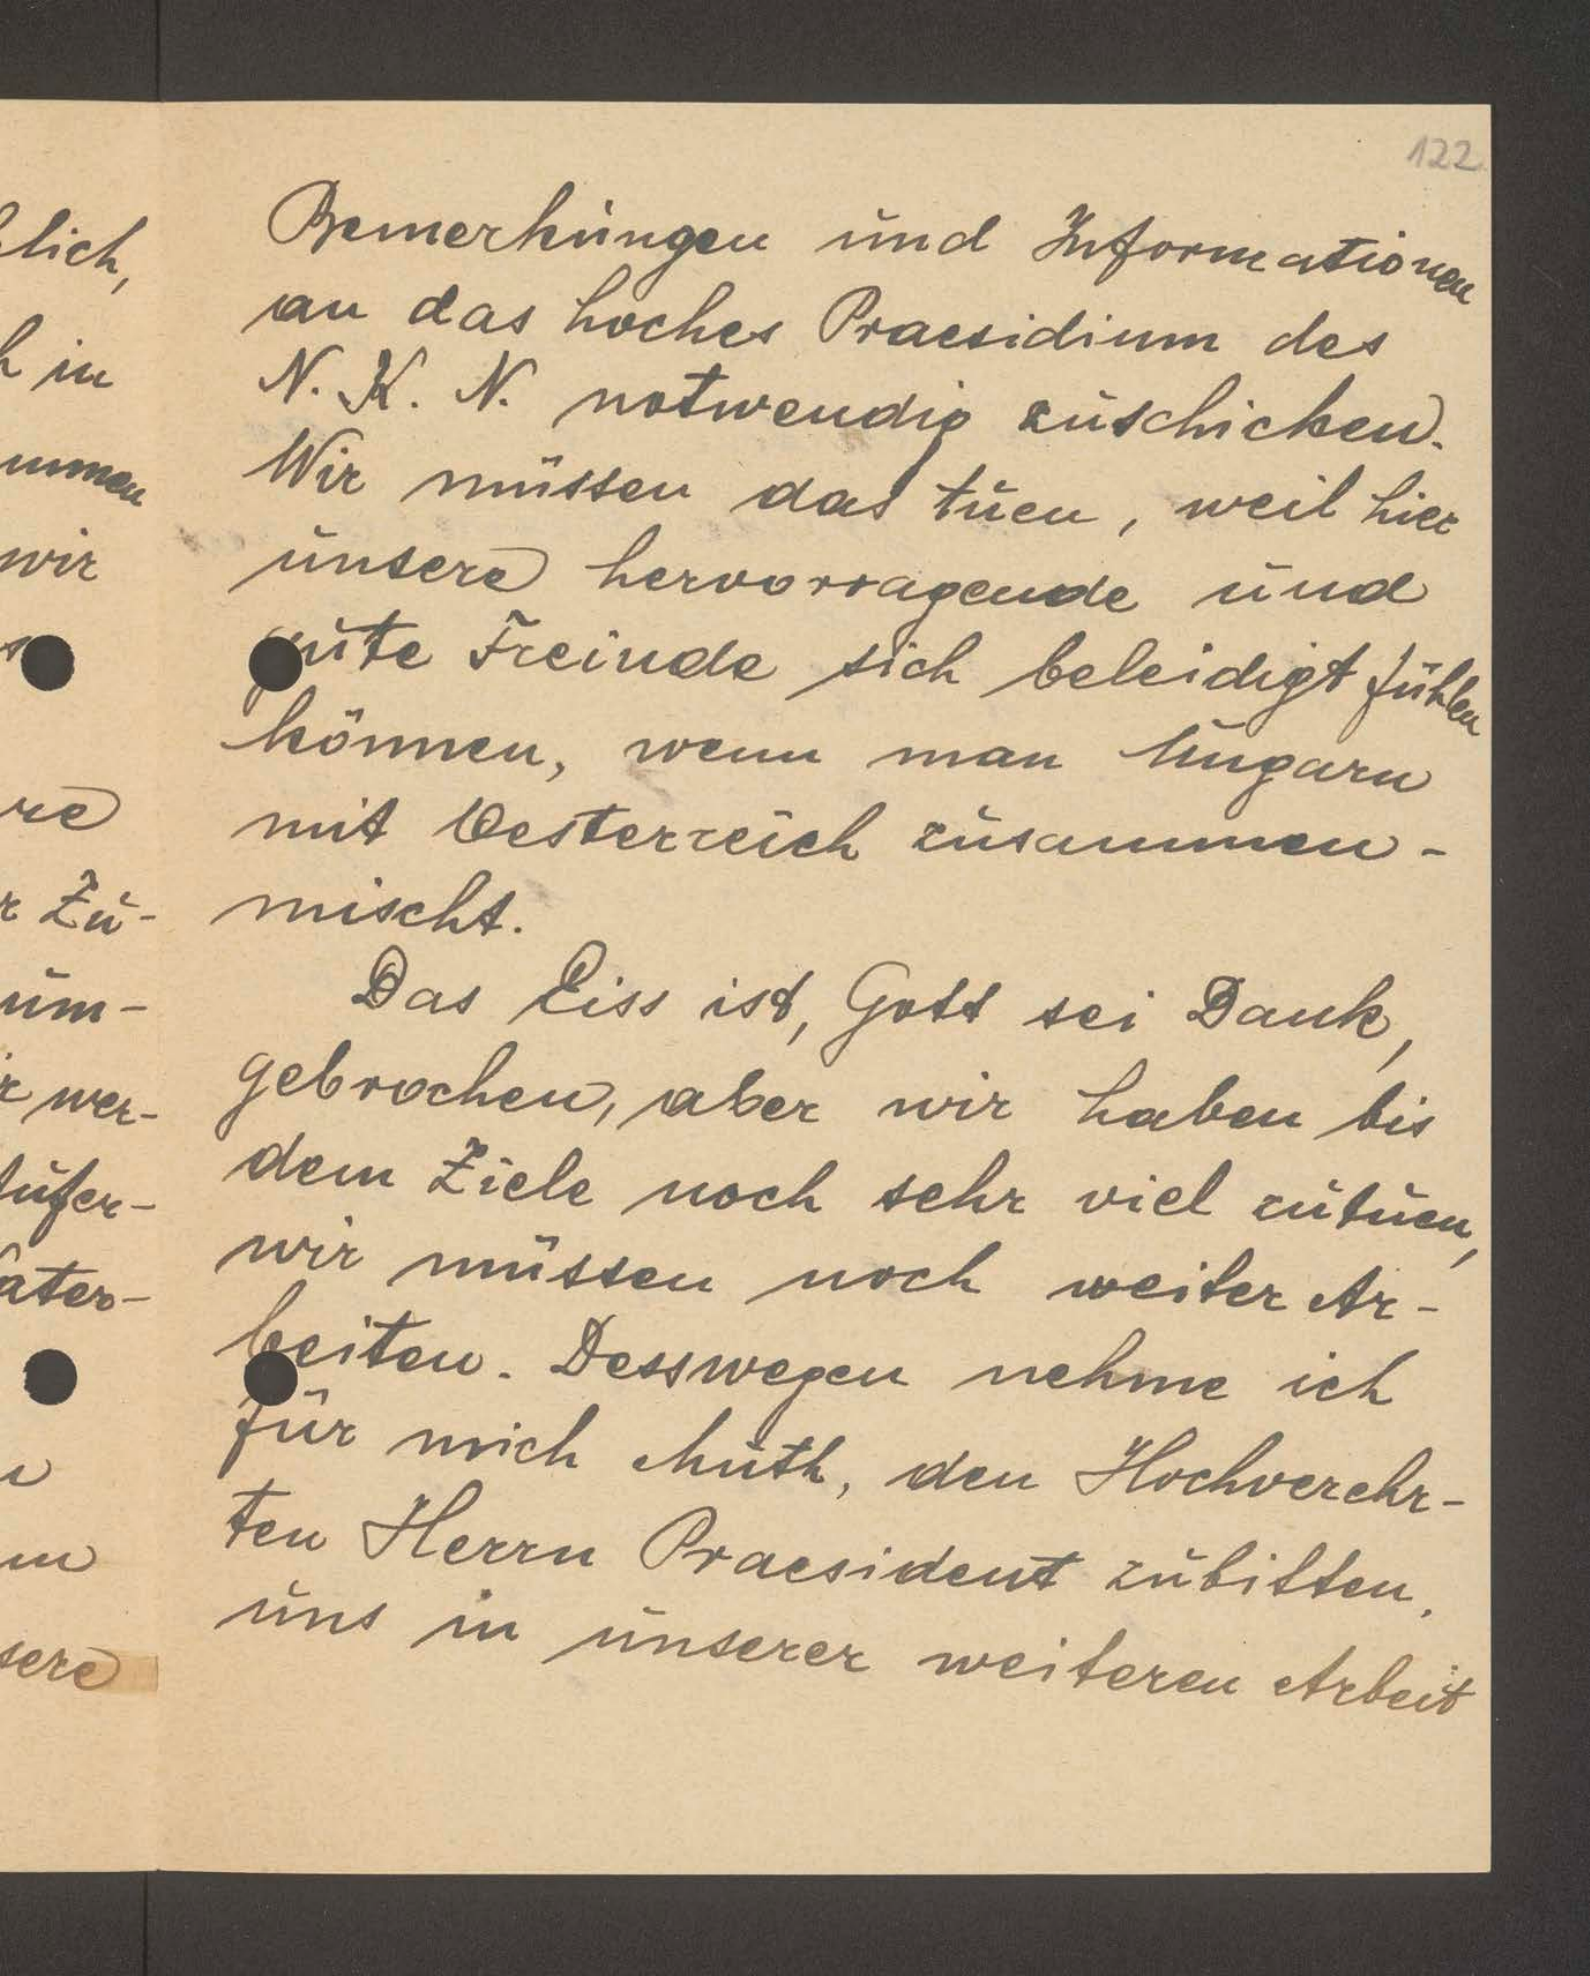 122
Bemerkungen und Informationen
an das hoches Praesidium des
N. K. N. notwendig zuschicken.
Wir müssen das tuen, weil hier
unsere hervorragende und
gute Freunde sich beleidigt fühlen
können, wenn man Ungarn
mit Oesterreich zusammen-
mischt.
Das Eiss ist, Gott sei Dank,
gebrochen, aber wir haben bis
dem Ziele noch sehr viel zutuen,
wir müssen noch weiter Ar-
beiten. Desswegen nehme ich
für mich Muth, den Hochverehr-
ten Herrn Praesident zubitten,
uns in unserer weiteren Arbeit
lich,
in
mmen
wir
re
Zu-
um-
wer-
ater-
sere